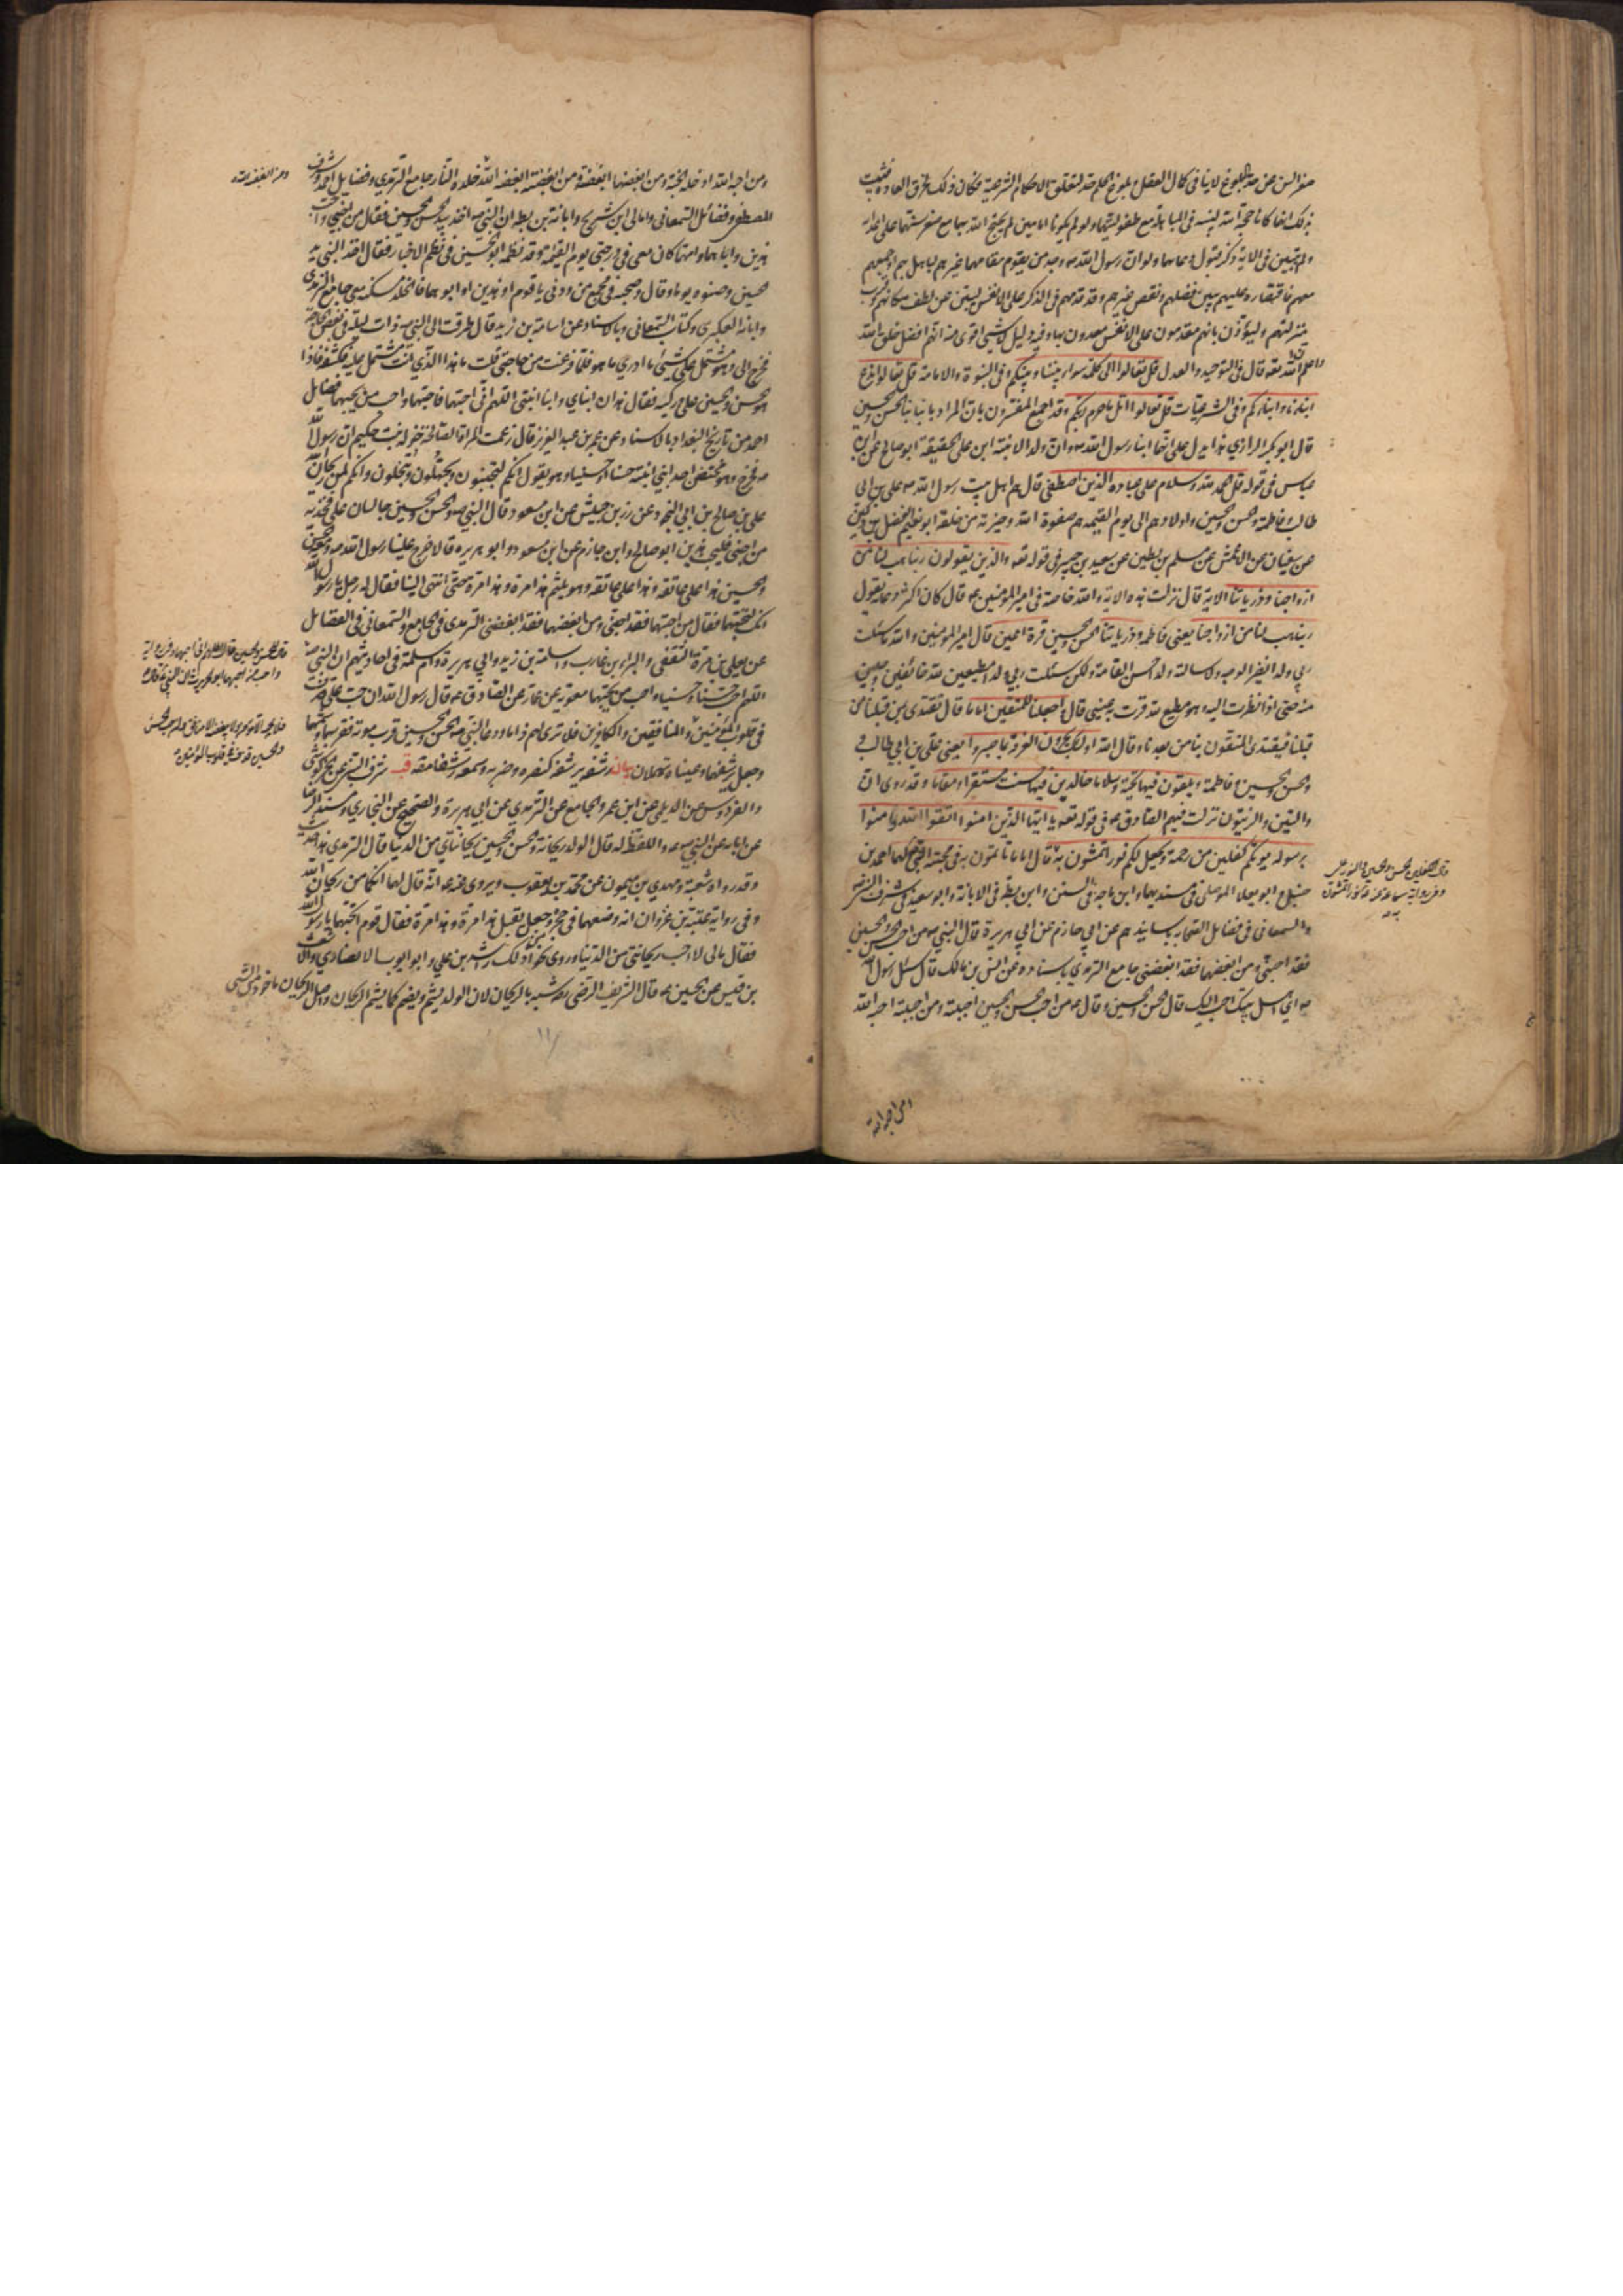 صغر السن عن حد البلوغ لا ينافي كمال العقل وبلوغ الحلم حد لتعلق الاحكام الشرعية فكان ذلك لخرق العادة فثبت
بذلك انهما كانا حجة الله لنبيه في المباهلة مع طفوليتهما ولو لم يكونا امامين لم يحتج الله بهما مع صغر سنهما على اعدائه
ولم يتبين في الآية ذكر قبول دعائهما ولو ان رسول الله ص وجد من يقوم مقامهم غيرهم لباهل بهم او جمعهم
معهم فاقتصاره عليهم يبين فضلهم ونقص غيرهم وقد قدمهم في الذكر على الانفس ليبين عن لطف مكانهم وقرب
منزلتهم وليؤذن بانهم مقدمون على الانفس معدون بها وفيه دليل لا شيء اقوى منه انهم افضل خلق الله
واعلم ان الله تعه قال في التوحيد والعدل قل تعالوا الى كلمة سواء بيننا وبينكم وفي النبوة والامامة قل تعالوا ندع
ابناءنا وابناءكم وفي الشرعيات قل تعالوا اتل ما حرم ربكم وقد اجمع المفسرون بان المراد بابنائنا الحسن والحسين
قال ابو بكر الرازي هذا يدل على انهما ابنا رسول الله ص وان ولد الابنة ابن على الحقيقة ابو صالح عن ابن
عباس في قوله قل الحمد لله وسلام على عباده الذين اصطفى قال هم اهل بيت رسول الله ص علي بن ابي
طالب وفاطمة والحسن والحسين واولادهم الى يوم القيمة هم صفوة الله وخيرته من خلقه ابو نعيم الفضل بن دكين
عن سفيان عن الاعمش عن مسلم بن بطين عن سعيد بن جبير في قوله تعه والذين يقولون ربنا هب لنا من
ازواجنا وذرياتنا الآية قال نزلت هذه الآية والله خاصة في امير المؤمنين ع قال كان اكثر دعائه يقول
ربنا هب لنا من ازواجنا يعني فاطمة وذرياتنا الحسن والحسين قرة اعين قال امير المؤمنين والله ما سئلت
ربي ولدا نضير الوجه ولا سالته ولدا حسن القامة ولكن سئلت ربي ولدا مطيعين لله خائفين وجلين
منه حتى اذا نظرت اليه وهو مطيع لله قرت به عيني قال واجعلنا للمتقين اماما قال نقتدي بمن قبلنا من
قبلنا فيقتدي المتقون بنا من بعدنا وقال الله اولئك يجزون الغرفة بما صبروا يعني علي بن ابي طالب و
الحسن والحسين وفاطمة ويلقون فيها تحية وسلاما خالدين فيها حسنت مستقرا ومقاما وقد روي ان
والتين والزيتون نزلت فيهم الصادق ع في قوله تعه يا ايها الذين امنوا اتقوا الله وامنوا
برسوله يؤتكم كفلين من رحمته ويجعل لكم نورا تمشون به قال اماما تأتمون به في محبة النبي لهما احمد بن
حنبل وابو يعلى الموصلي في مسنديهما وابن ماجه في السنن وابن بطة في الابانة وابو سعيد في شرف النبي
والسمعاني في فضائل الصحابة باسانيدهم عن ابي حازم عن ابي هريرة قال النبي ص من احب الحسن والحسين
فقد احبني ومن ابغضهما فقد ابغضني جامع الترمذي باسناده عن انس بن مالك قال سئل رسول الله
ص اي اهل بيتك احب اليك قال الحسن والحسين وقال ص من احب الحسن والحسين احببته ومن احببته احبه الله
قال الكفلين الحسن والحسين والنور علي
وفي رواية سماعة عنه ع نورا تمشون
به
ومن احبه الله ادخله الجنة ومن ابغضهما ابغضته ومن ابغضته ابغضه الله خلده النار جامع الترمذي وفضايل احمد وشرف
المصطفى وفضائل السمعاني وامالي ابن شريح وابانة بن بطة ان النبي ص اخذ بيد الحسن والحسين فقال من احبني واحب
هذين واباهما وامهما كان معي في درجتي يوم القيمة وقد نظمه ابو الحسين في نظم الاخبار فقال اخذ النبي يد
الحسين وصنوه يوما وقال وصحبه في مجمع من ودني يا قوم او هذين او ابويهما فالخلد مسكنه معي جامع الترمذي
وابانة العكبري وكتاب السمعاني وبالاسناد عن اسامة بن زيد قال طرقت الى النبي ص ذات ليلة في بعض الحاجة
فخرج الي وهو مشتمل على شيء ما ادري ما هو فلما فرغت من حاجتي قلت ما هذا الذي انت مشتمل عليه فكشفه فاذا
هو حسن والحسين على وركيه فقال هذان ابناي وابنا ابنتي اللهم اني احبهما فاحبهما واحب من يحبهما فضايل
احمد من تاريخ البغداد بالاسناد وعن عمر بن عبد العزيز قال زعمت المراة الصالحة خولة بنت حكيم ان رسول الله
ص خرج وهو محتضن احد ابني ابنته حسنا او حسينا وهو يقول انكم لتجبنون وتجهلون وتبخلون وانكم لمن ريحان الله
علي بن صالح بن ابي النجود عن زر بن حبيش عن ابن مسعود قال النبي ص والحسن والحسين جالسان على فخذيه
من احبني فليحب هذين ابو صالح وابن حازم عن ابن مسعود وابو هريرة قالا خرج علينا رسول الله ص ومعه الحسن
والحسين هذا على عاتقه وهذا على عاتقه وهو يلثم هذا مرة وهذا مرة حتى انتهى الينا فقال له رجل يا رسول الله
انك لتحبهما فقال من احبهما فقد احبني ومن ابغضهما فقد ابغضني الترمذي في الجامع والسمعاني في الفضايل
عن يعلى بن مرة الثقفي والبراء بن عازب واسامة بن زيد وابي هريرة وام سلمة في احاديثهم ان النبي ص
اللهم احب حسنا وحسينا واحب من يحبهما معوية بن عمار عن الصادق ع قال رسول الله ان حب علي قذف
في قلوب المؤمنين والمنافقين والكافرين فلا ترى لهم ذاما ودعا النبي ص الحسن والحسين قرب موته فقربهما وشمهما
وجعل يرشفهما وعيناه تهملان بيان رشفه يرشفه كنصره وضربه وسمعه رشفا مصه قب شرف النبي عن الخركوشي
والفردوس عن الديلمي عن ابن عمر والجامع عن الترمذي عن ابي هريرة والصحيح عن البخاري ومسند الرضا
عن ابائه عن النبي ص واللفظ له قال الولد ريحانة والحسن والحسين ريحانتاي من الدنيا قال الترمذي هذا حديث
وقد رواه شعبة ومهدي بن ميمون عن محمد بن يعقوب ويروى عنه ع انه قال لهما انكما من ريحان الله
وفي رواية عتبة بن غزوان انه وضعهما في حجره وجعل يقبل هذا مرة وهذا مرة فقال قوم اتحبهما يا رسول الله
فقال مالي لا احب ريحانتي من الدنيا وروى نحوا من ذلك راشد بن علي وابو ايوب الانصاري والاشعث
بن قيس عن الحسين ع قال الشريف الرضي ره شبه بالريحان لان الولد يشم ويضم كما يشم الريحان واصل الريحان ماخوذ من الشيء
ومن ابغضه الله